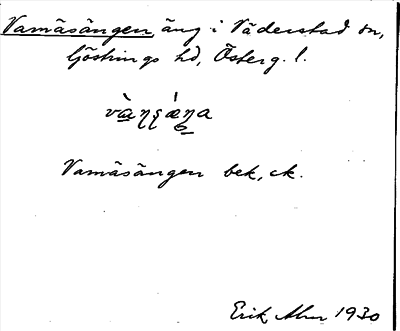 Vamäsängen, äng i Väderstad sn,
Göstrings hd, Österg. l.
vàŋsǽŋa
Vamäsängen bek, ek.
Erik Abr 1930